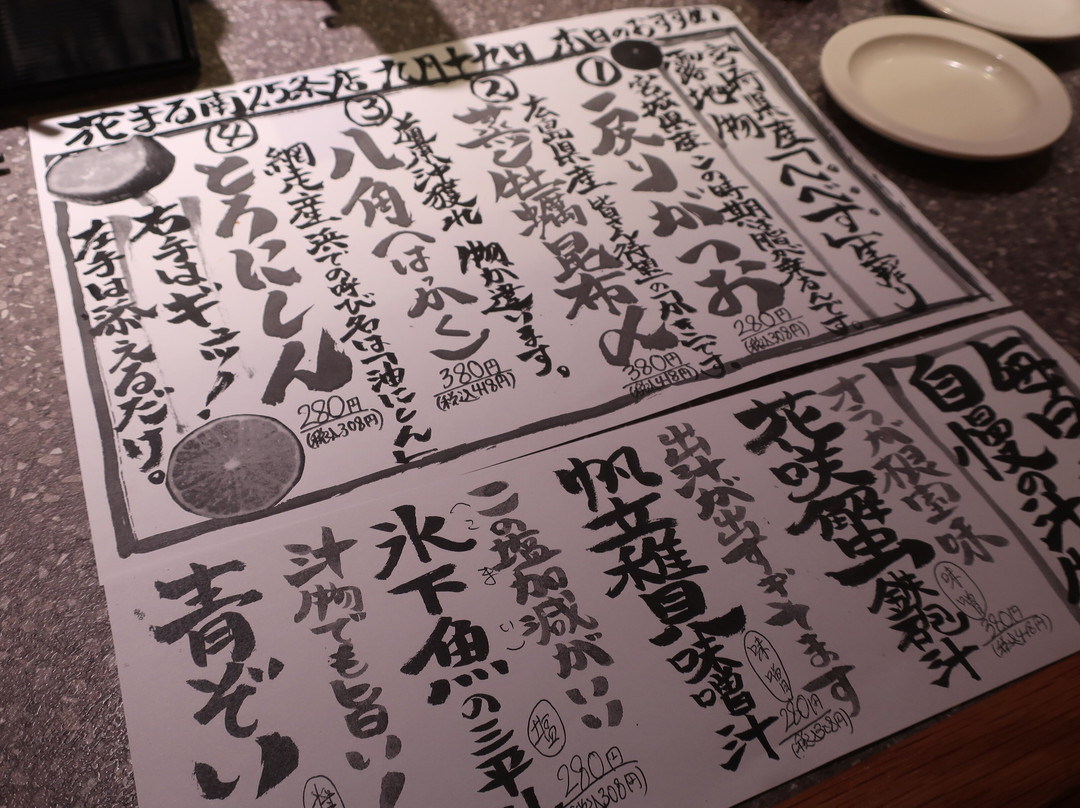 花まる南25条店 九月十九日 本日のおすすめ
宮崎県産「へべす」生搾り
露地物
宮城県産 この時期も脂の乗るんです。
①
戻りがつお
280円
(税込308円)
皆さん待望の一かきです。
②
蒸し牡蠣昆布〆
380円
(税込418円)
道東沖獲れ 物が違います。
③
八角(はっかく)
380円
(税込418円)
網走産 浜での呼び名は「油にしん」
④
とろにしん
280円
(税込308円)
右手はギュッ!
左手は添えるだけ。
毎日
自慢の汁
オスが根室味
花咲蟹鉄砲汁
味噌
380円
出汁が出すぎてます
帆立稚貝味噌汁
味噌
280円
(税込308円)
この塩加減がいい
氷下魚の三平
塩
280円
汁物でも旨い!
青ぞい